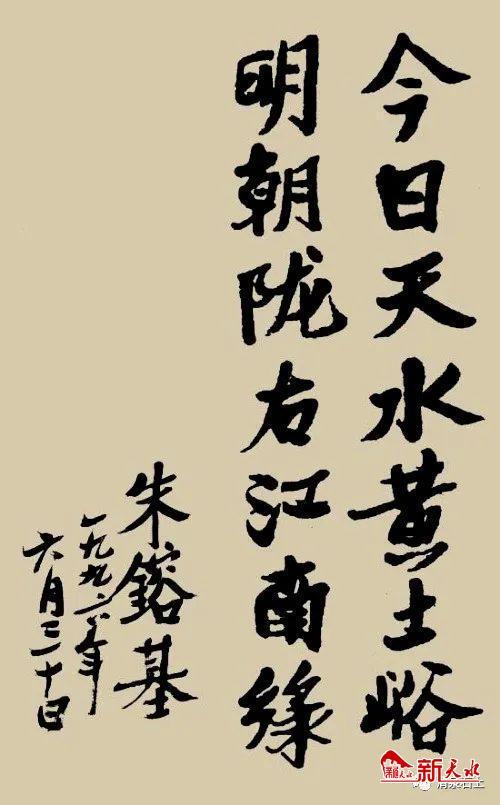 今日天水黄土峪
明朝陇右江南绿
朱鎔基
一九九六年
六月三十日
新天水